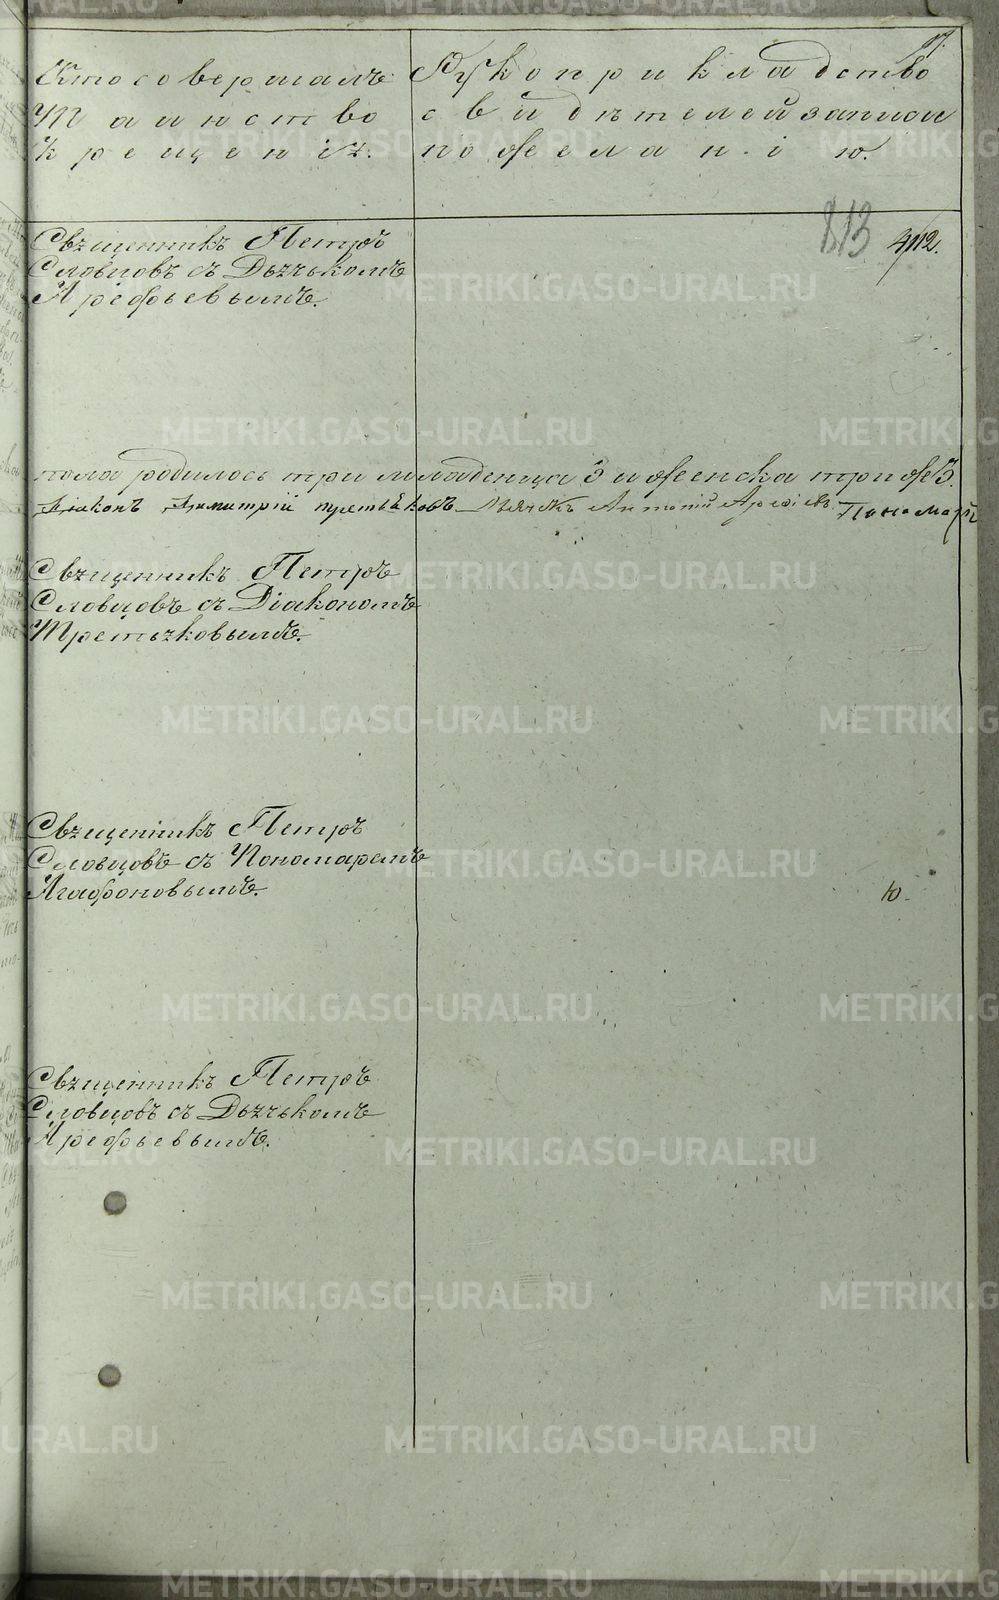 Кто совершалъ
Таинство
Крещенія.
Рукоприкладство
свидѣтелей записи
по желанію.
813 412.
Священникъ Петръ
Словцовъ съ Дьячькомъ
Арефьевымъ.
пола родилось три младенца 3 и женска три же 3.
Діаконъ Димитрій Третьяковъ Дьячекъ Пономарь
Священникъ Петръ
Словцовъ съ Діакономъ
Третьяковымъ.
Священникъ Петръ
Словцовъ съ Пономаремъ
Агафоновымъ.
Ю.
Священникъ Петръ
Словцовъ съ Дьячькомъ
Арефьевымъ.
METRIKI.GASO-URAL.RU